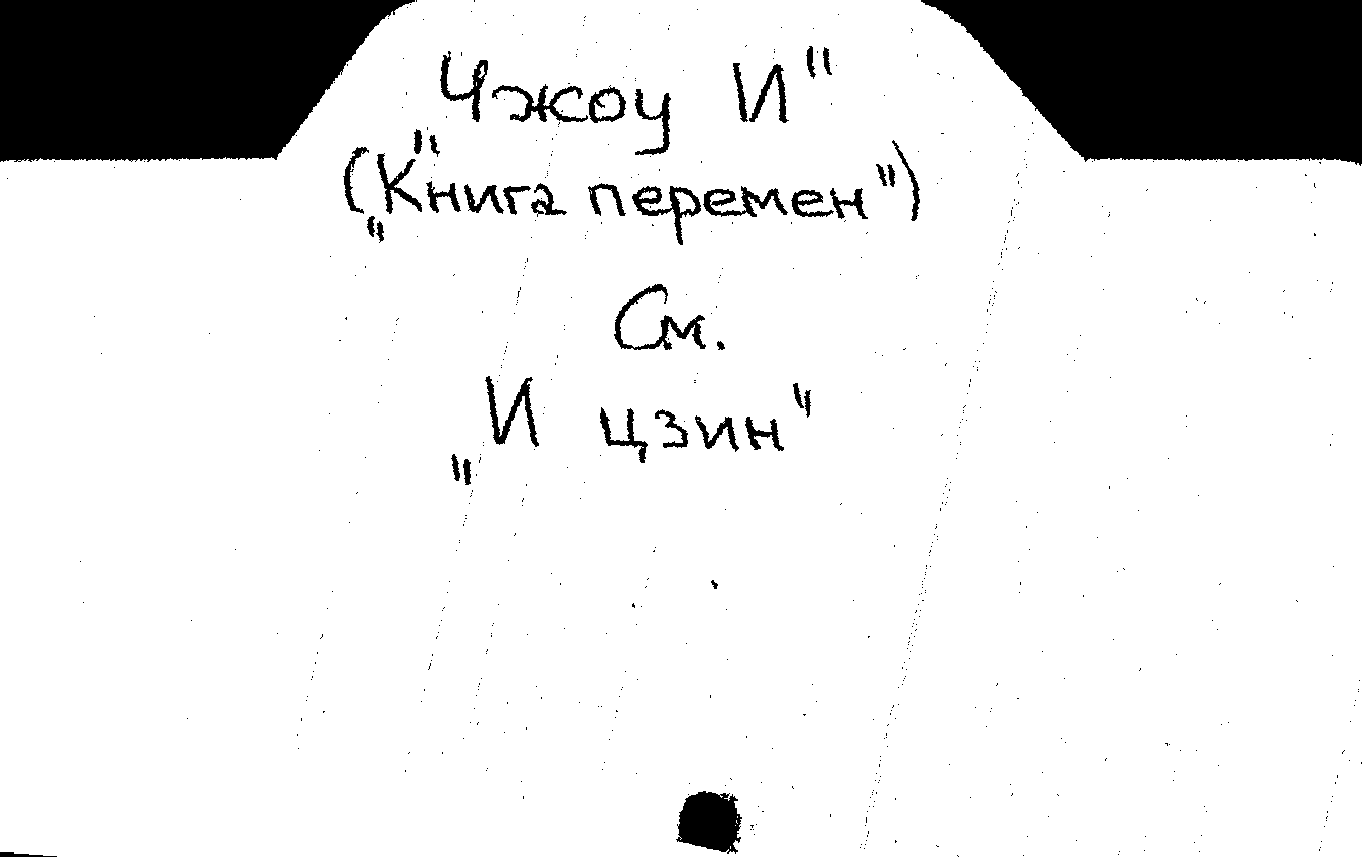 „Чжоу И"
(„Книга перемен")
См.
„И цзин"